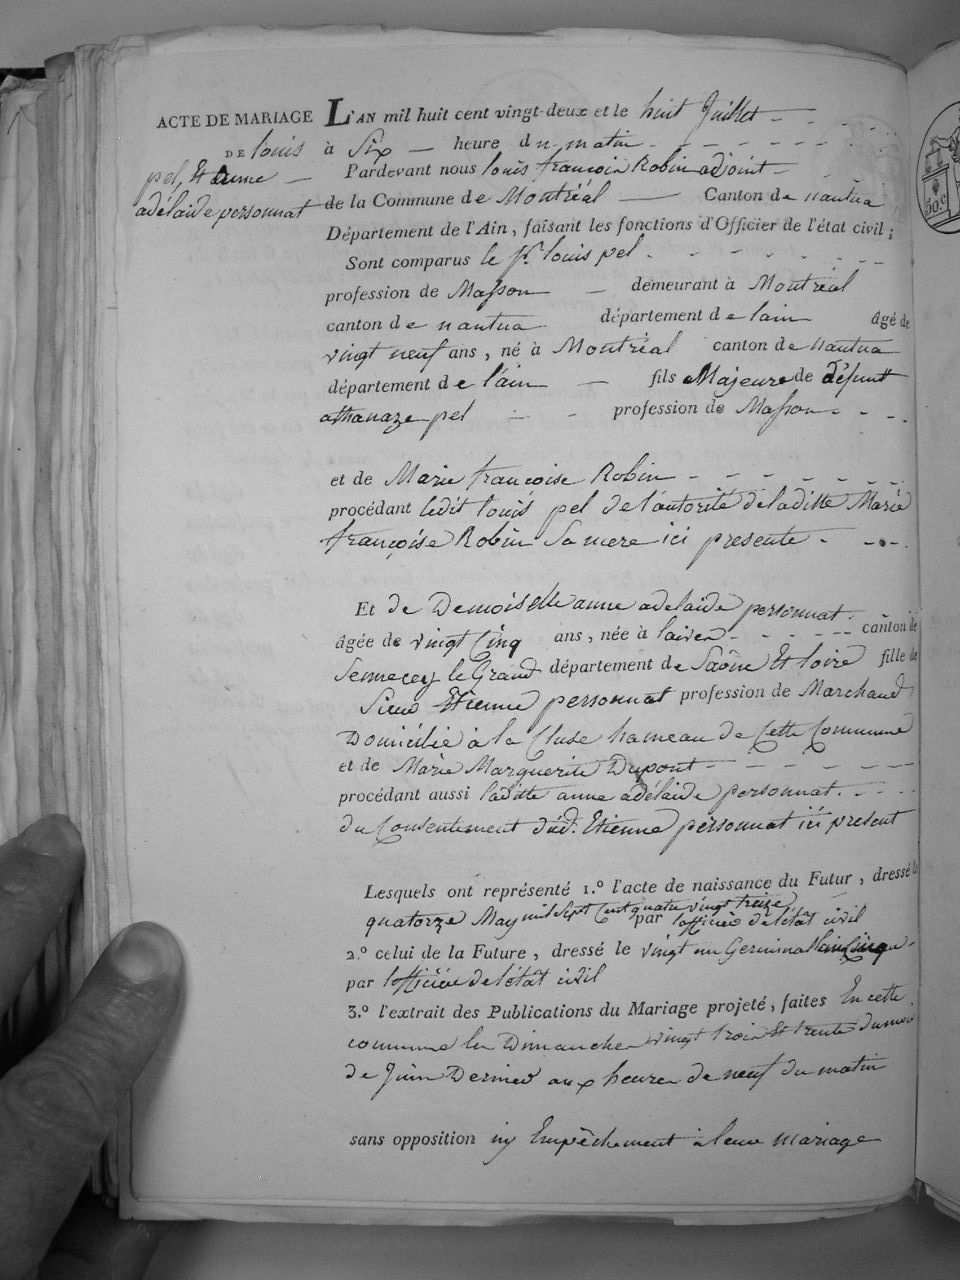 ACTE DE MARIAGE
DE louis
pel, Et anne
adélaide personnat
L'AN mil huit cent vingt-deux et le huit Juillet
à Six heure du matin
Pardevant nous louis francois Robin adjoint
de la Commune de Montréal Canton de nantua
Département de l'Ain, faisant les fonctions d'Officier de l'état civil;
Sont comparus le Sr. louis pel
profession de Masson demeurant à Montréal
canton de nantua département de lain âgé de
vingt neuf ans, né à Montréal canton de nantua
département de l'ain fils Majeure de défunt
athanaze pel profession de Masson
et de Marie françoise Robin
procédant ledit louis pel de l'autorité de laditte Marie
françoise Robin Sa mere ici presente
Et de Demoiselle anne adelaide personnat
âgée de vingt Cinq ans, née à laives canton de
Sennecey le Grand département de Saône Et loire fille de
Sieur Etienne personnat profession de Marchand
Domicilié à la Cluse hameau de Cette Commune
et de Marie Marguerite Dupont
procédant aussi laditte anne adélaide personnat
du Consentement dud. Etienne personnat ici present
Lesquels ont représenté 1.° l'acte de naissance du Futur, dressé le
quatorze May mil Sept Cent quatre vingt treize par l'officier de l'état civil
2.° celui de la Future, dressé le vingt un Germinal Cinq
par l'officier de l'état civil
3.° l'extrait des Publications du Mariage projeté, faites En cette
commune les Dimanches vingt trois Et trente du mois
de Juin Dernier aux heures de neuf du matin
sans opposition ny Empêchement à leur mariage